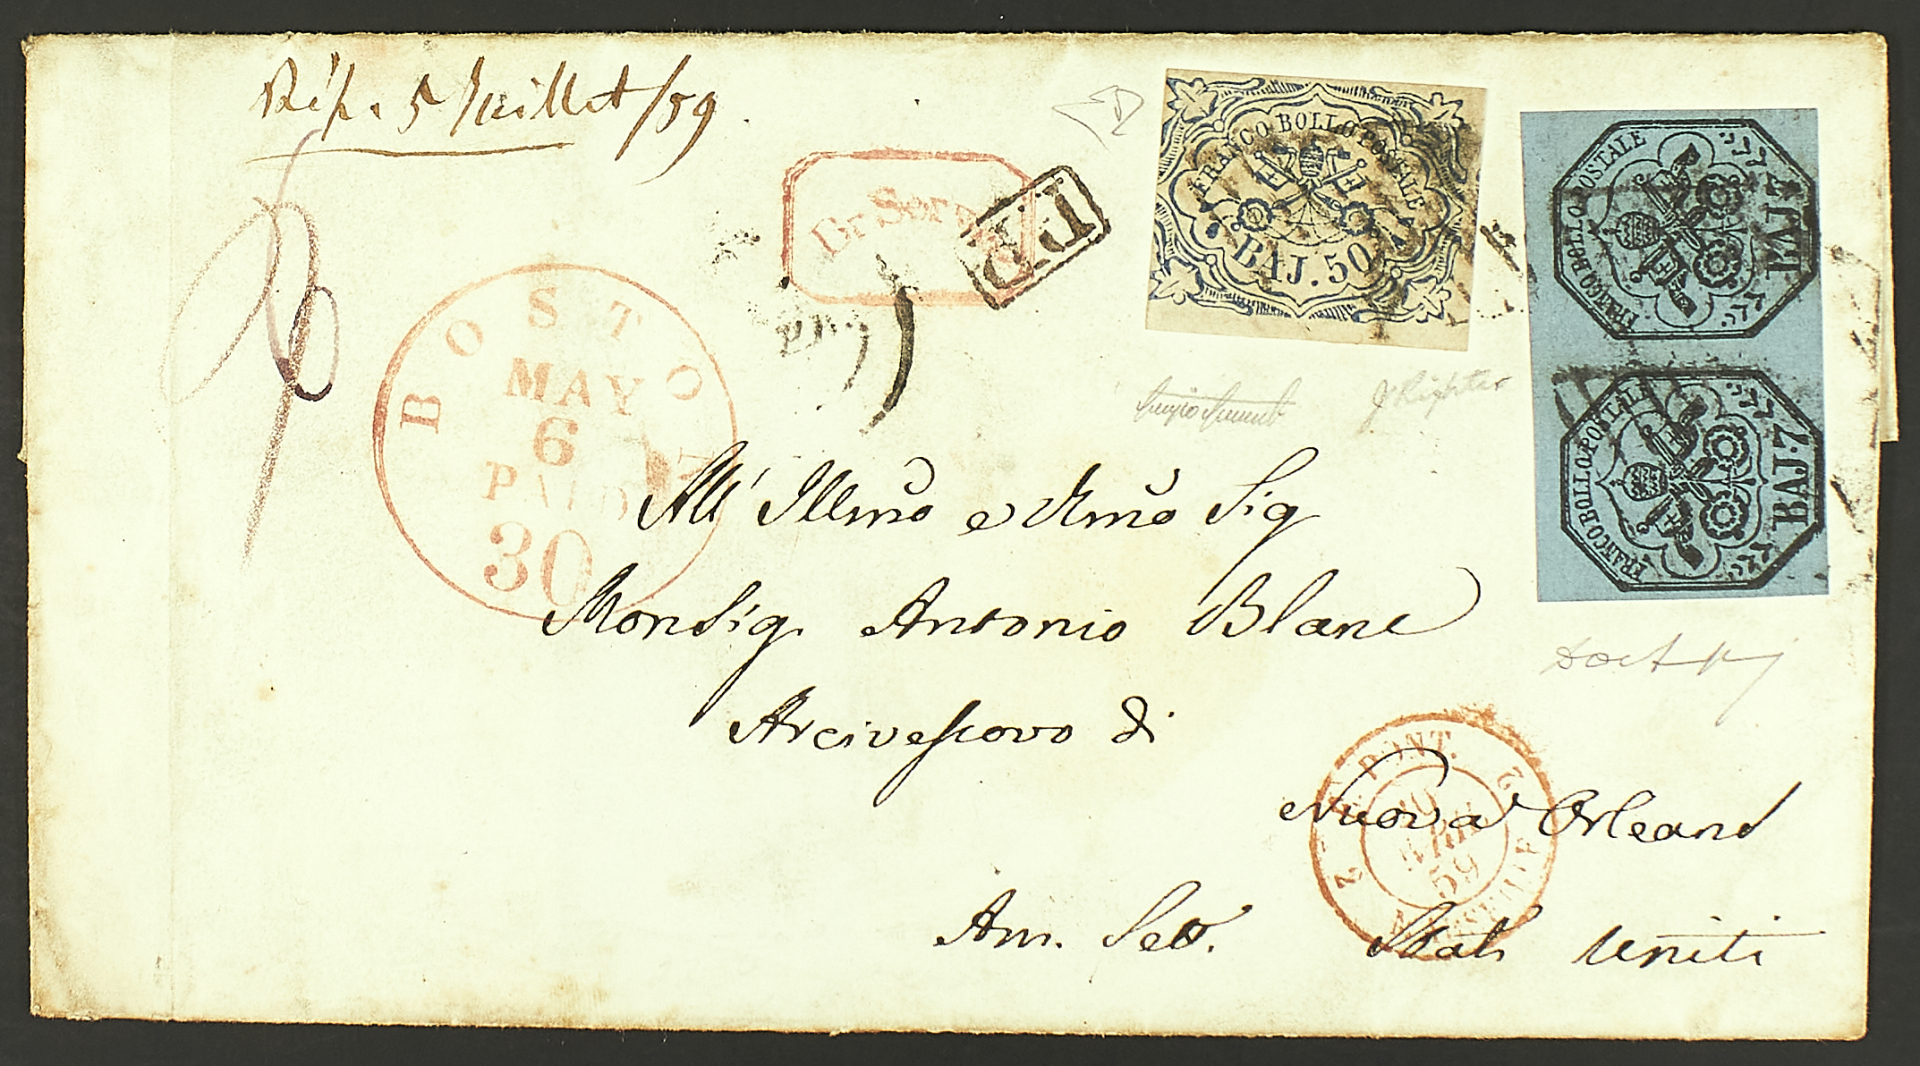 Rép. 5 Juillet/59
Br Serv
PD
FRANCO BOLLO POSTALE
BAJ. 50
FRANCO BOLLO POSTALE
BAJ. 7
FRANCO BOLLO POSTALE
BAJ. 7
BOSTON
MAY
6
PAID
30
J Richter
All' Illmo e Rmo Sig
Monsig. Antonio Blanc
Arcivescovo di
Nuova Orleans
Am. Sett. Stati Uniti
E. PONT.
2 2
10
AVRIL
59
MARSEILLE